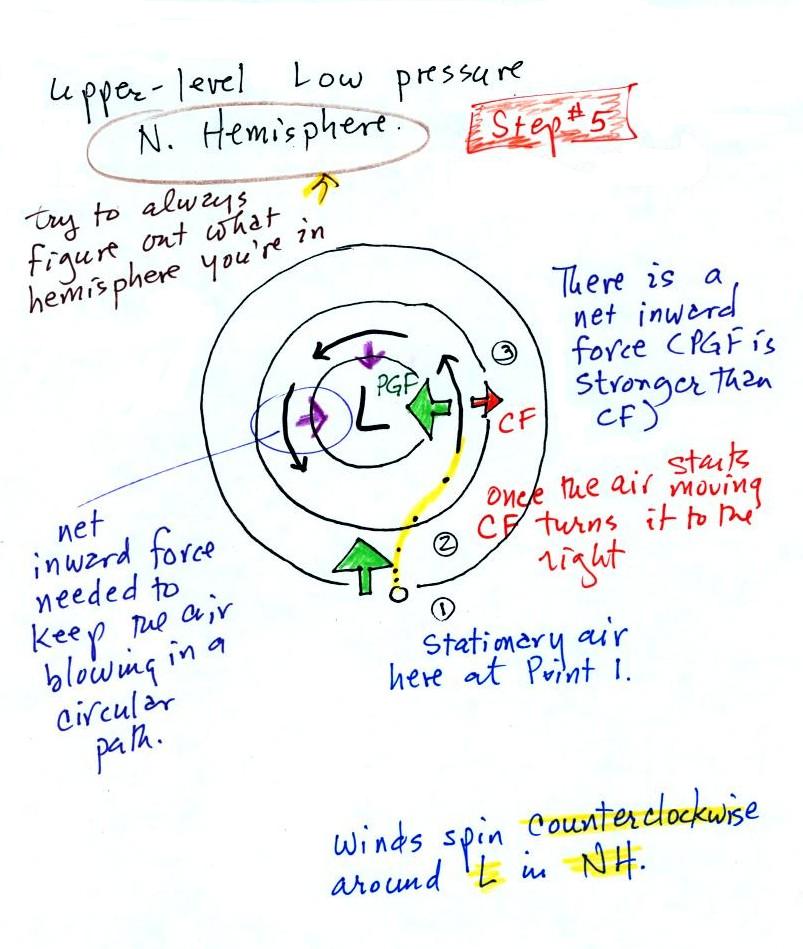 Upper-level Low pressure
N. Hemisphere.
Step #5
try to always
figure out what
hemisphere you're in
There is a
net inward
force (PGF is
stronger than
CF)
③
PGF
L
CF
once the air starts moving
CF turns it to the
right
②
①
Stationary air
here at Point 1.
net
inward force
needed to
keep the air
blowing in a
circular
path.
Winds spin counterclockwise
around L in NH.